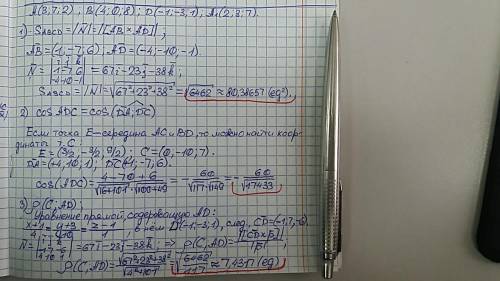 A(3;7;2), B(4;0;8); D(-1;-3;1), A₁(2;3;7).
1) S_ABCD = |N̄| = |[AB × AD]|;
AB = (1; -7; 6), AD = (-4; -10; -1)
N̄ = |i j k; 1 -7 6; -4 -10 -1| = 67i - 23j - 38k;
S_ABCD = |N| = √(67² + 23² + 38²) = √6462 ≈ 80,38657 (ед²).
2) cos ADC = cos(DA; DC)
Если точка E - середина AC и BD, то можно найти коор-
динаты т. C:
E = (3/2; -3/2; 9/2); C = (0; -10; 7).
DA = (+4; 10; 1); DC(1; -7; 6).
cos(ADC) = (4 - 70 + 6)/(√(16+101) · √(100+49)) = -60/(√117 · √149) = -60/√17433
3) ρ(C, AD);
Уравнение прямой, содержащую AD:
(x+1)/4 = (y+3)/10 = (z-1)/1, в ней D(-1; -3; 1), след. CD = (-1; 7; -6).
N = |i j k; 1 -7 6; -4 -10 -1| = 67i - 23j - 38k; => ρ(C, AD) = |[CD × p̄]|/|p̄|
ρ(C, AD) = √(67² + 23² + 38²)/√(4² + 101) = √(6462/117) ≈ 7,4317 (ед)